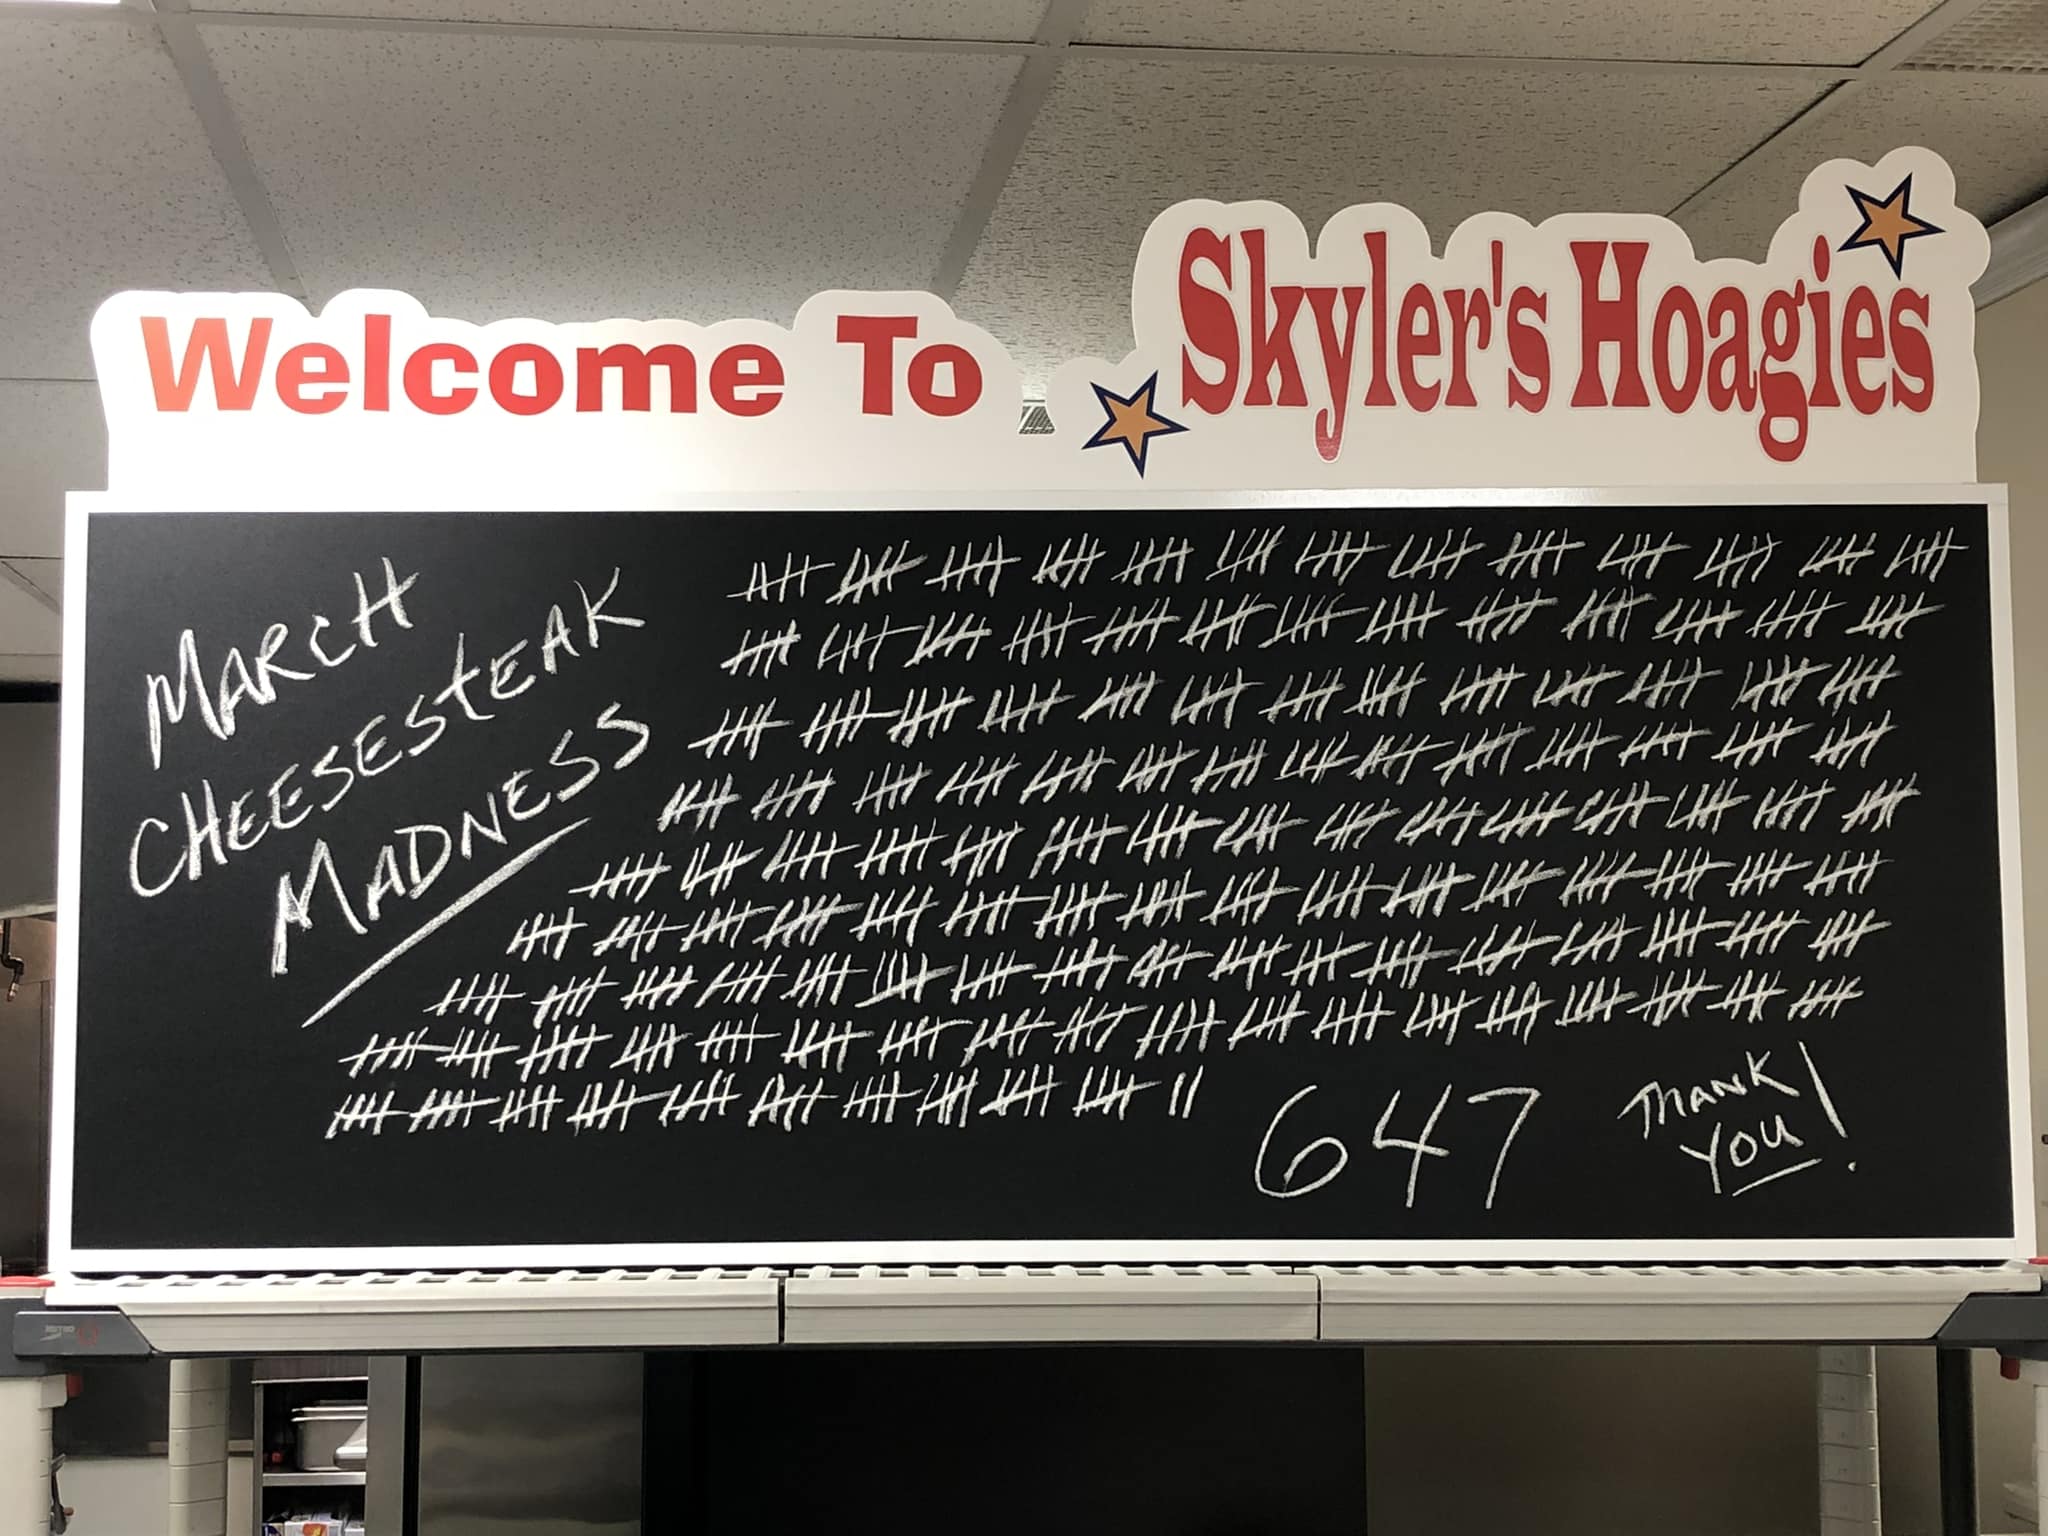 Welcome To Skyler's Hoagies
MARCH
CHEESESTEAK
MADNESS
647
THANK
YOU!